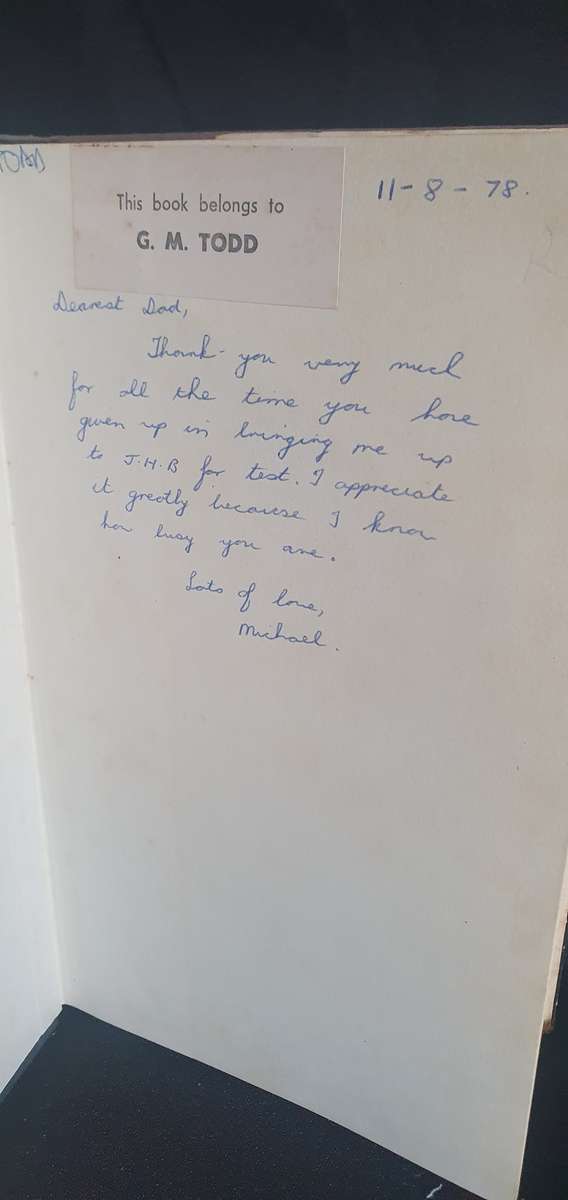 TODD
This book belongs to
G. M. TODD
11-8-78.
Dearest Dad,
Thank-you very much
for all the time you have
given up in bringing me up
to J.H.B for test. I appreciate
it greatly because I know
how busy you are.
Lots of love,
Michael.